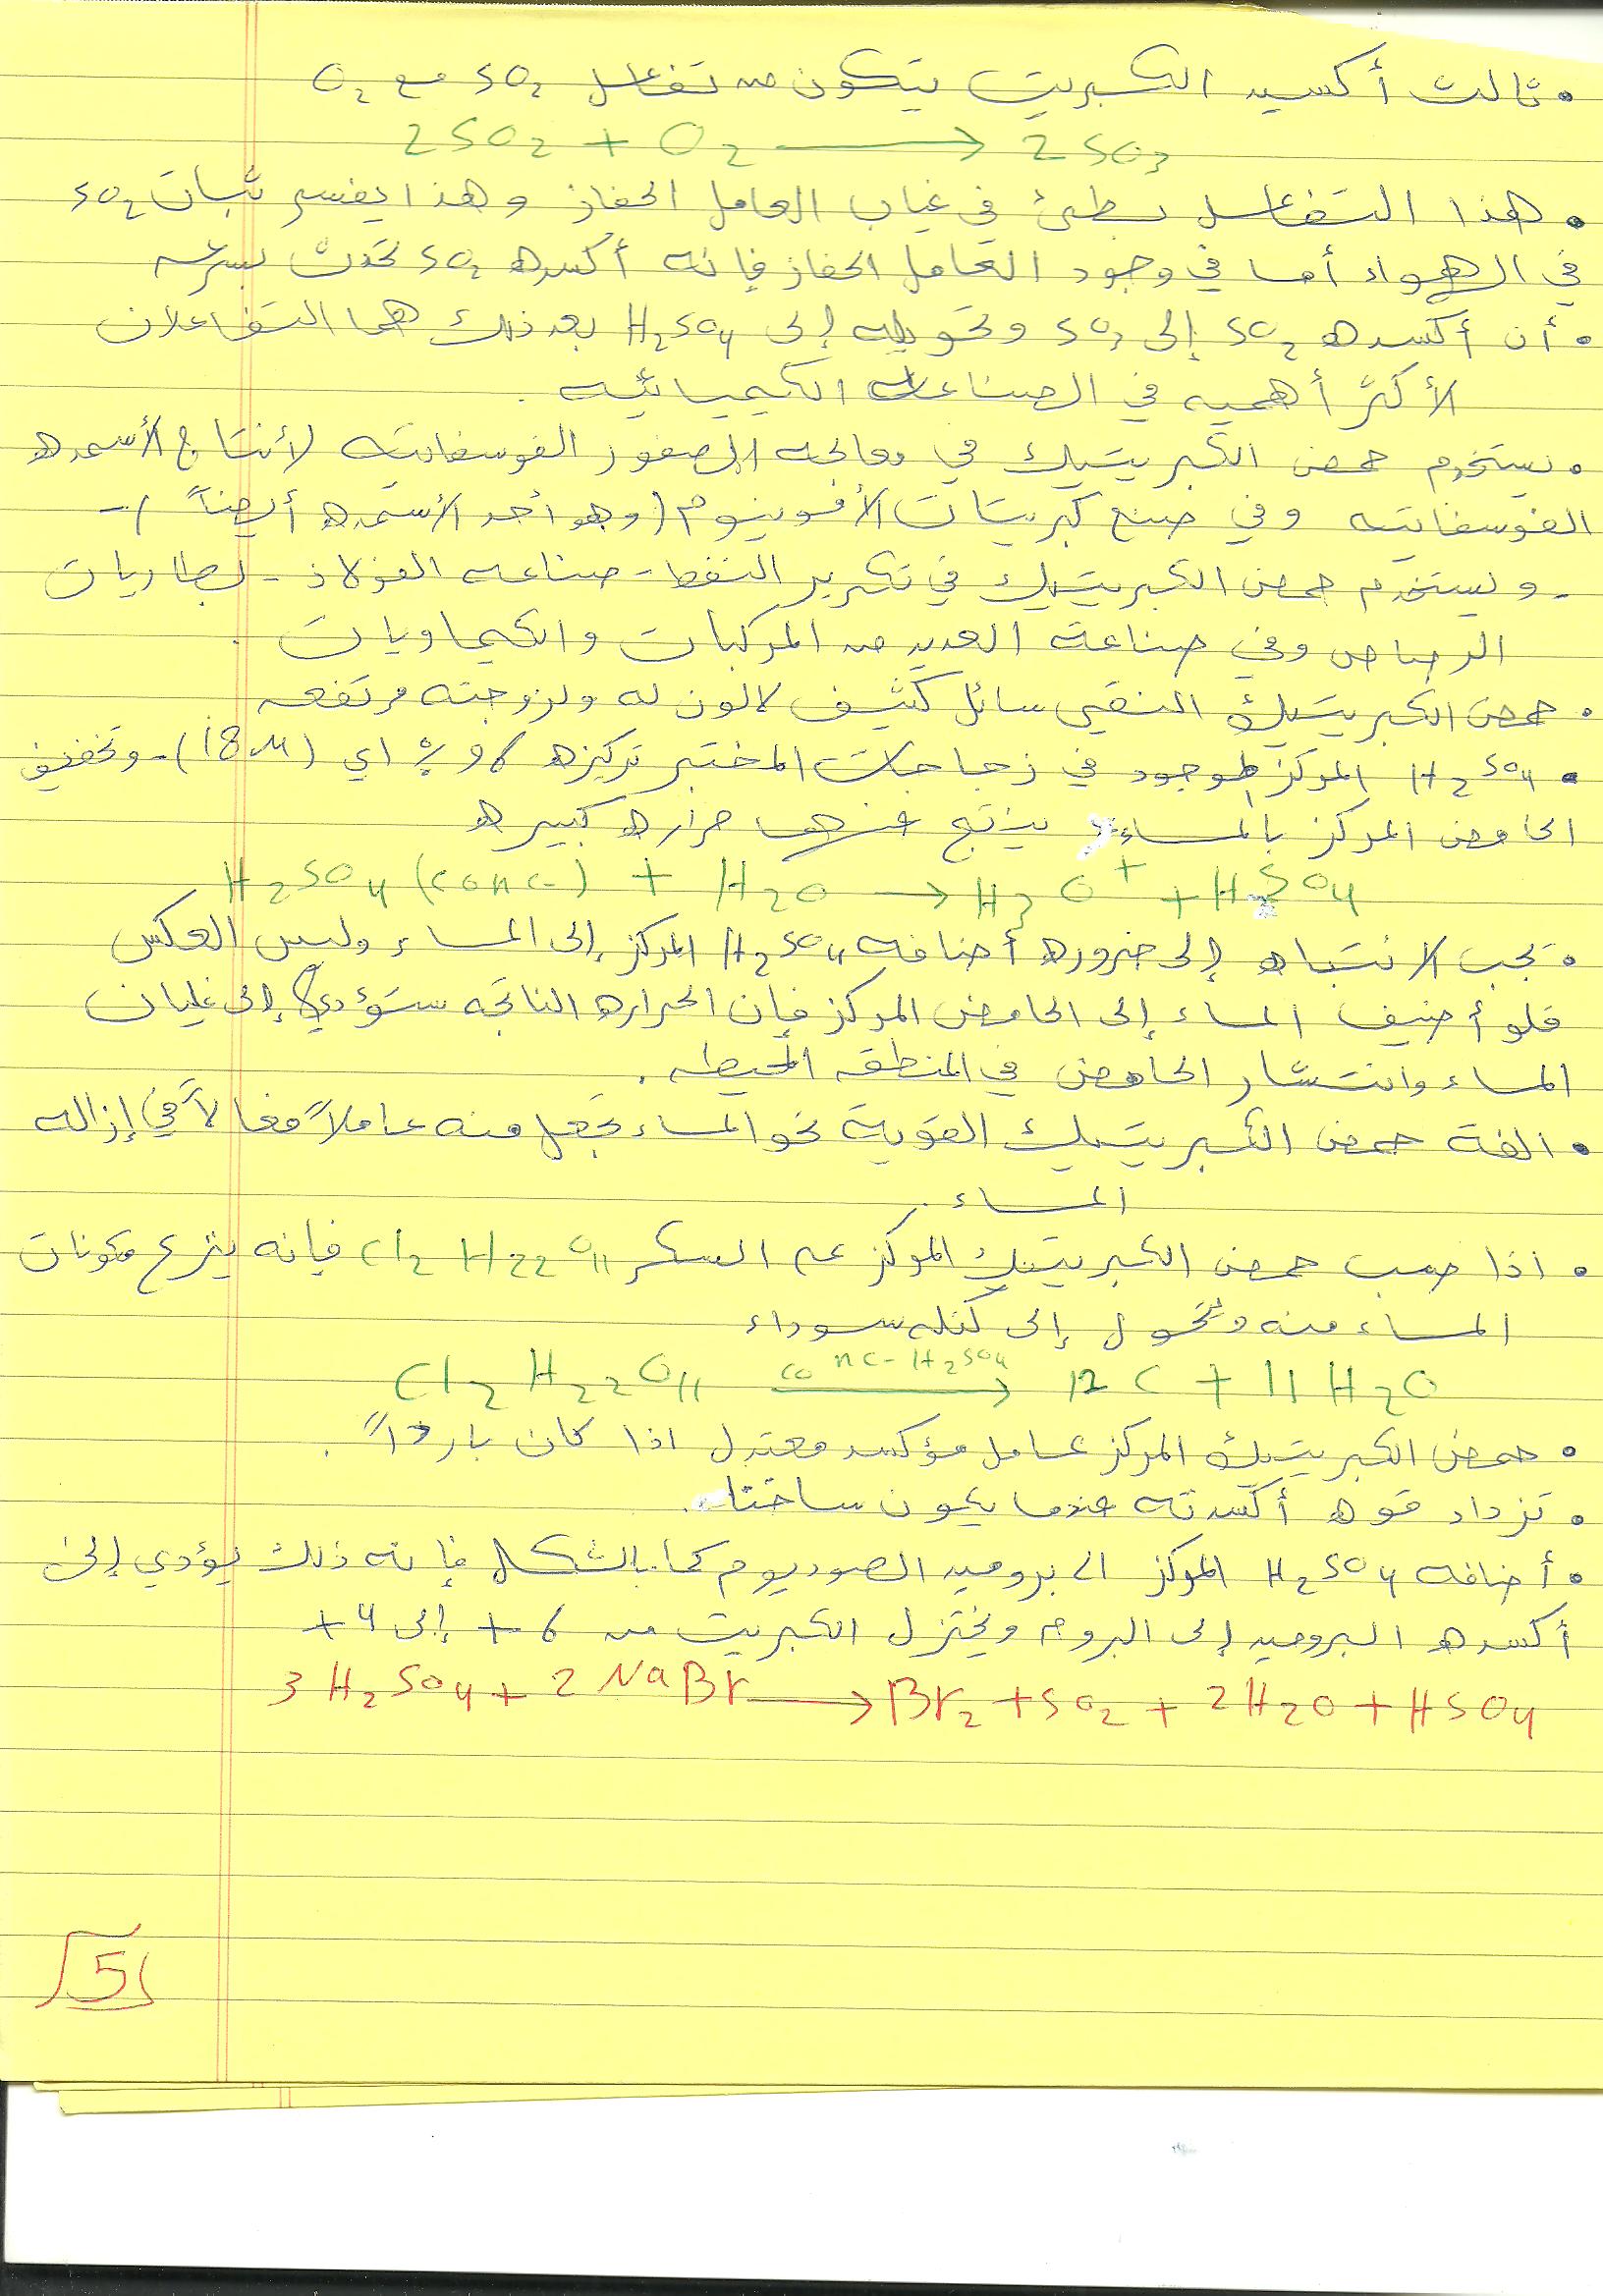 • ثالث أكسيد الكبريت يتكون من تفاعل SO₂ مع O₂
2SO₂ + O₂ ⟶ 2SO₃
• هذا التفاعل بطئ في غياب العامل الحفاز وهذا يفسر ثبات SO₂
في الهواء أما في وجود العامل الحفاز فإنه أكسده SO₂ تحدث بسرعه
• أن أكسده SO₂ إلى SO₃ وتحويله إلى H₂SO₄ بعد ذلك هما التفاعلان
الأكثر أهميه في الصناعات الكيميائيه .
• يستخدم حمض الكبريتيك في معالجه الصخور الفوسفاتيه لأنتاج الأسمده
الفوسفاتيه وفي صنع كبريتات الأمونيوم (وهو أحد الأسمده أيضاً) -
- ويستخدم حمض الكبريتيك في تكرير النفط - صناعه الفولاذ - بطاريات
الرصاص وفي صناعة العديد من المركبات والكيماويات .
• حمض الكبريتيك النقي سائل كثيف لالون له ولزوجته مرتفعه
• H₂SO₄ المركز الموجود في زجاجات المختبر تركيزه اي (18M) - وتخفيف
الحامض المركز بالماء ينتج عنها حراره كبيره
H₂SO₄ (conc-) + H₂O ⟶ H₃O⁺ + HSO₄
• يجب الانتباه إلى ضروره أضافه H₂SO₄ المركز إلى الماء وليس العكس
فلو أضيف الماء إلى الحامض المركز فإن الحراره الناتجه ستؤدي إلى غليان
الماء وانتشار الحامض في المنطقه المحيطه .
• الفة حمض الكبريتيك القوية نحو الماء تجعل منه عاملاً فعالاً في إزاله
الماء .
• اذا صب حمض الكبريتيك المركز على السكر C₁₂H₂₂O₁₁ فإنه ينزع مكونات
الماء منه ويتحول إلى كتله سوداء
C₁₂H₂₂O₁₁ ⟶ (conc-H₂SO₄) 12C + 11H₂O
• حمض الكبريتيك المركز عامل مؤكسد معتدل اذا كان بارداً .
• تزداد قوه أكسدته عندما يكون ساخنا .
• أضافه H₂SO₄ المركز الى بروميد الصوديوم كما بالشكل فإنه ذلك يؤدي إلى
أكسده البروميد إلى البروم ويختزل الكبريت من 6+ إلى 4+
3H₂SO₄ + 2NaBr ⟶ Br₂ + SO₂ + 2H₂O + HSO₄
5